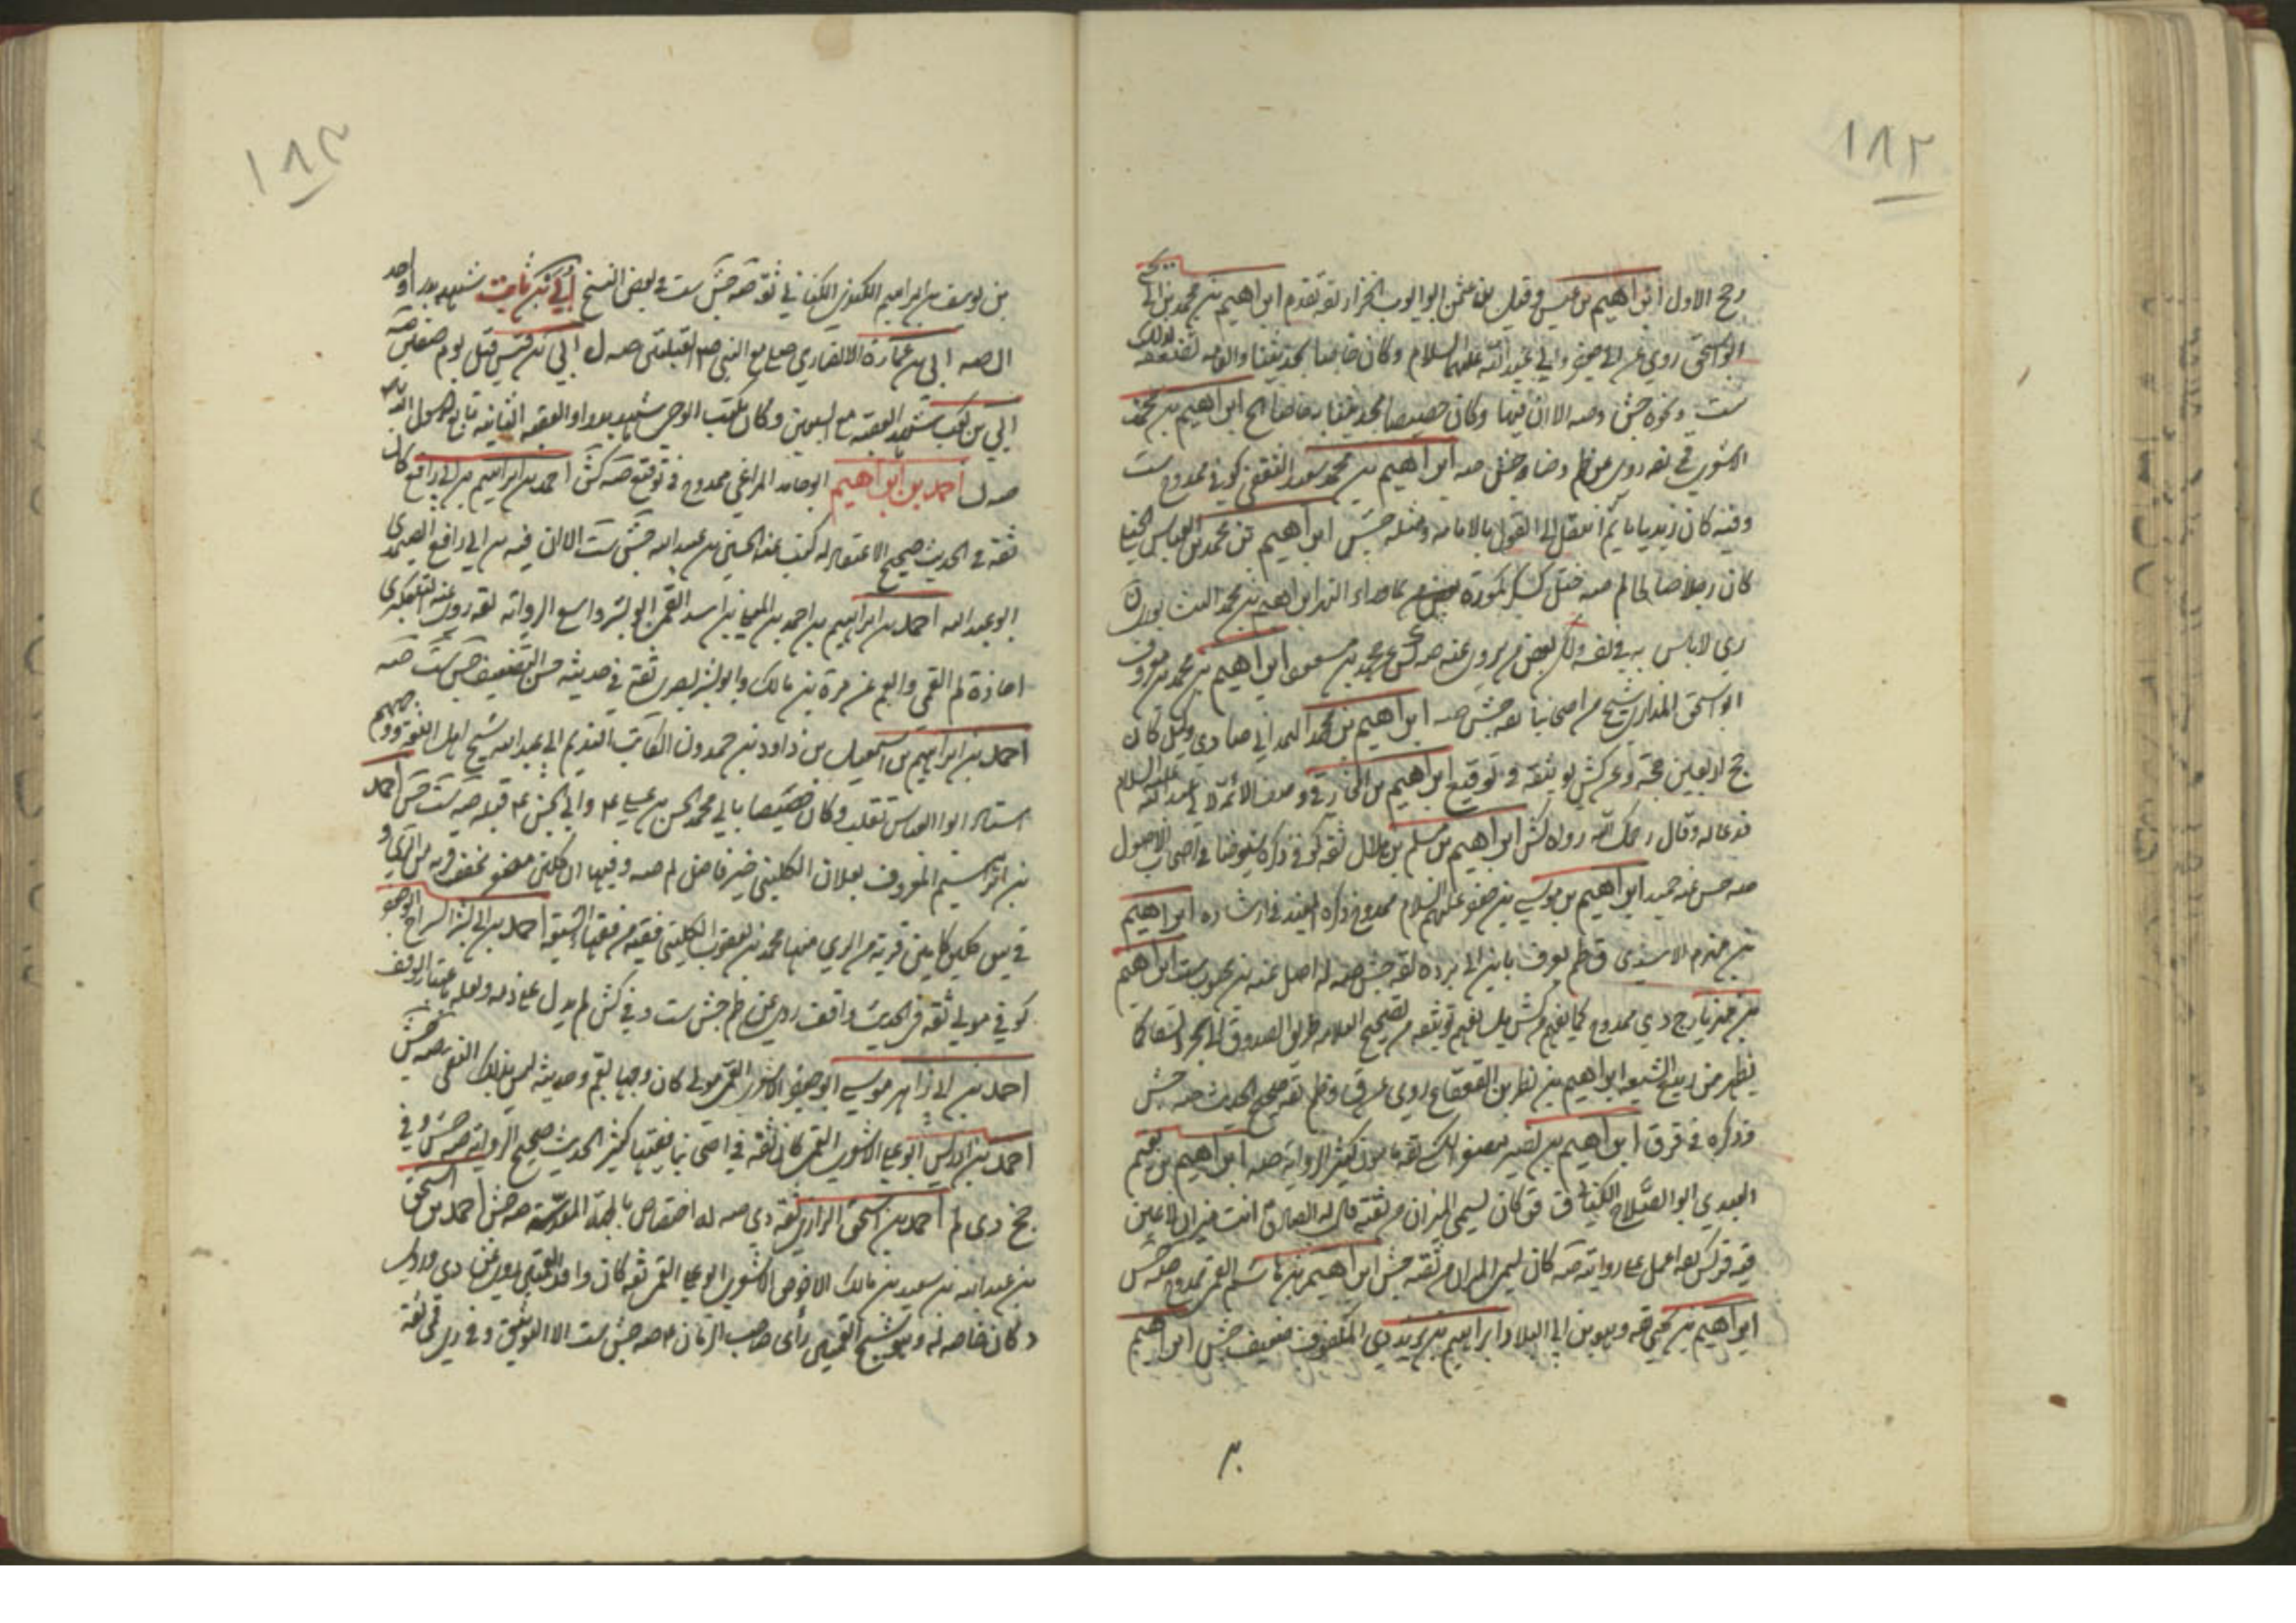 ١٨٢
رجح الاول ابراهيم بن عيسى وقيل بن عثمن ابو ايوب الخزاز ثقة تقدم ابراهيم بن محمد بن ابي يحيى
ابو اسحق روى عن ابي جعفر وابي عبد الله عليهما السلام وكان خاصا بحديثنا والعامة تضعفه لذلك
ست ونحوه جش وصه الا ان فيها وكان خصيصا بحديثنا ابراهيم بن محمد
الاشعري قمي ثقة روى عن ظم وضا وجش صه ابراهيم بن محمد بن سعيد الثقفي كوفي ممدوح ست
وفيه كان زيديا ثم انتقل الى القول بالامامة ومثله جش ابراهيم بن محمد بن العباس الختلي
كان رجلا صالحا لم صه ابراهيم بن محمد
دي لا باس به في نفسه ولكن بعض من يروي عنه صه كش عن محمد بن مسعود ابراهيم بن محمد بن معروف
ابو اسحق المذاري شيخ من اصحابنا ثقة جش صه ابراهيم بن محمد الهمداني ضا دي وكيل كان
حج اربعين حجة وعن كش توثيقه في توقيع ابراهيم بن المخارقي وصف الائمة لابي عبد الله عليه السلام
فدعا له وقال رحمك الله رواه كش ابراهيم بن مسلم بن هلال ثقة كوفي ذكره شيوخنا في اصحاب الاصول
صه جش عنه حميد ابراهيم بن موسى بن جعفر عليهم السلام ممدوح ذكره المفيد في ارشاده ابراهيم
بن مهزم الاسدي ق ظم يعرف بابن ابي بردة ثقة جش صه له اصل عنه بن محبوب ست ابراهيم
بن مهزيار ج دي ممدوح كما يفهم من كش بل يفهم توثيقه من تصحيح العلامة طريق الصدوق الى بحر السقا كما
يظهر من ربيع الشيعة ابراهيم بن نصر بن القعقاع روى عن ق وظم ثقة صحيح الحديث صه جش
وذكره في قر ق ابراهيم بن نصير ثقة مامون كثير الرواية صه ابراهيم بن نعيم
العبدي ابو الصلاح الكناني ق قر كان يسمى الميزان من ثقته قال له الصادق انت ميزان لا عين
فيه قر كش ثقة اعمل على روايته صه كان يسمى الميزان من ثقته جش ابراهيم بن هاشم القمي ممدوح صه جش
ابراهيم بن يحيى ثقة وهو بن ابي البلاد ابراهيم بن يزيد دي المكفوف ضعيف جش ابراهيم
بن
١٨٣
بن يوسف بن ابراهيم الكندي الكناني ثقة صه جش ست في بعض النسخ أُبي بن ثابت شهد بدرا واحد
ال صه ابي بن عمارة الانصاري صلى مع النبي ص القبلتين صه ل ابي بن قيس قتل يوم صفين صه
ابي بن كعب شهد العقبة مع السبعين وكان يكتب الوحي شهد بدرا والعقبة الثانية بايع لرسول الله
صه ل احمد بن ابراهيم ابو حامد المراغي ممدوح في توقيع صه كش احمد بن ابراهيم بن ابي رافع كان
ثقة في الحديث صحيح الاعتقاد له كتب عنه الحسين بن عبيد الله جش ست الا ان فيه بن ابي رافع الصيمري
ابو عبد الله احمد بن ابراهيم بن احمد بن المعلى بن اسد القمي ابو بشر واسع الرواية ثقة روى عنه التلعكبري
اجازة لم القمي والعم عن مرة بن مالك وابو بشر بصري ثقة في حديثه حسن التصنيف جش ست صه
احمد بن ابراهيم بن اسمعيل بن داود بن حمدون الكاتب النديم ابي عبد الله شيخ اهل اللغة ووجههم
استاد ابو العباس ثعلب وكان خصيصا بابي محمد الحسن بن علي ع وابي الحسن ع قبله صه ست جش احمد
بن ابراهيم المعروف بعلان الكليني خير فاضل لم صه وفيها ان كلين مخفف قرية من الري و
في س كلين كامير قرية من الري منها محمد بن يعقوب الكليني فقيه من فقهاء الشيعة احمد بن ابي بشر السراج ابو جعفر
كوفي مولى ثقة في الحديث واقف روى عن ظم جش ست وفي كش لم يدل على ذمه ولعله باعتبار الوقف
احمد بن ابي زاهر موسى ابو جعفر الاشعري القمي مولى كان وجها بقم وحديثه ليس بذلك النقي صه جش
احمد بن ادريس ابو علي الاشعري القمي كان ثقة في اصحابنا فقيها كثير الحديث صحيح الرواية صه جش وفي
جخ دي لم احمد بن اسحق الرازي ثقة دي صه له اختصاص بالجهة المقدسة صه جش احمد بن اسحق
بن عبد الله بن سعد بن مالك الاحوص الاشعري ابو علي القمي ثقة كان وافد القميين روى عن ج دي وروى
د كان خاصته وهو شيخ القميين رأى صاحب الزمان ع صه جش ست الا التوثيق وفي دي ري قمي ثقة